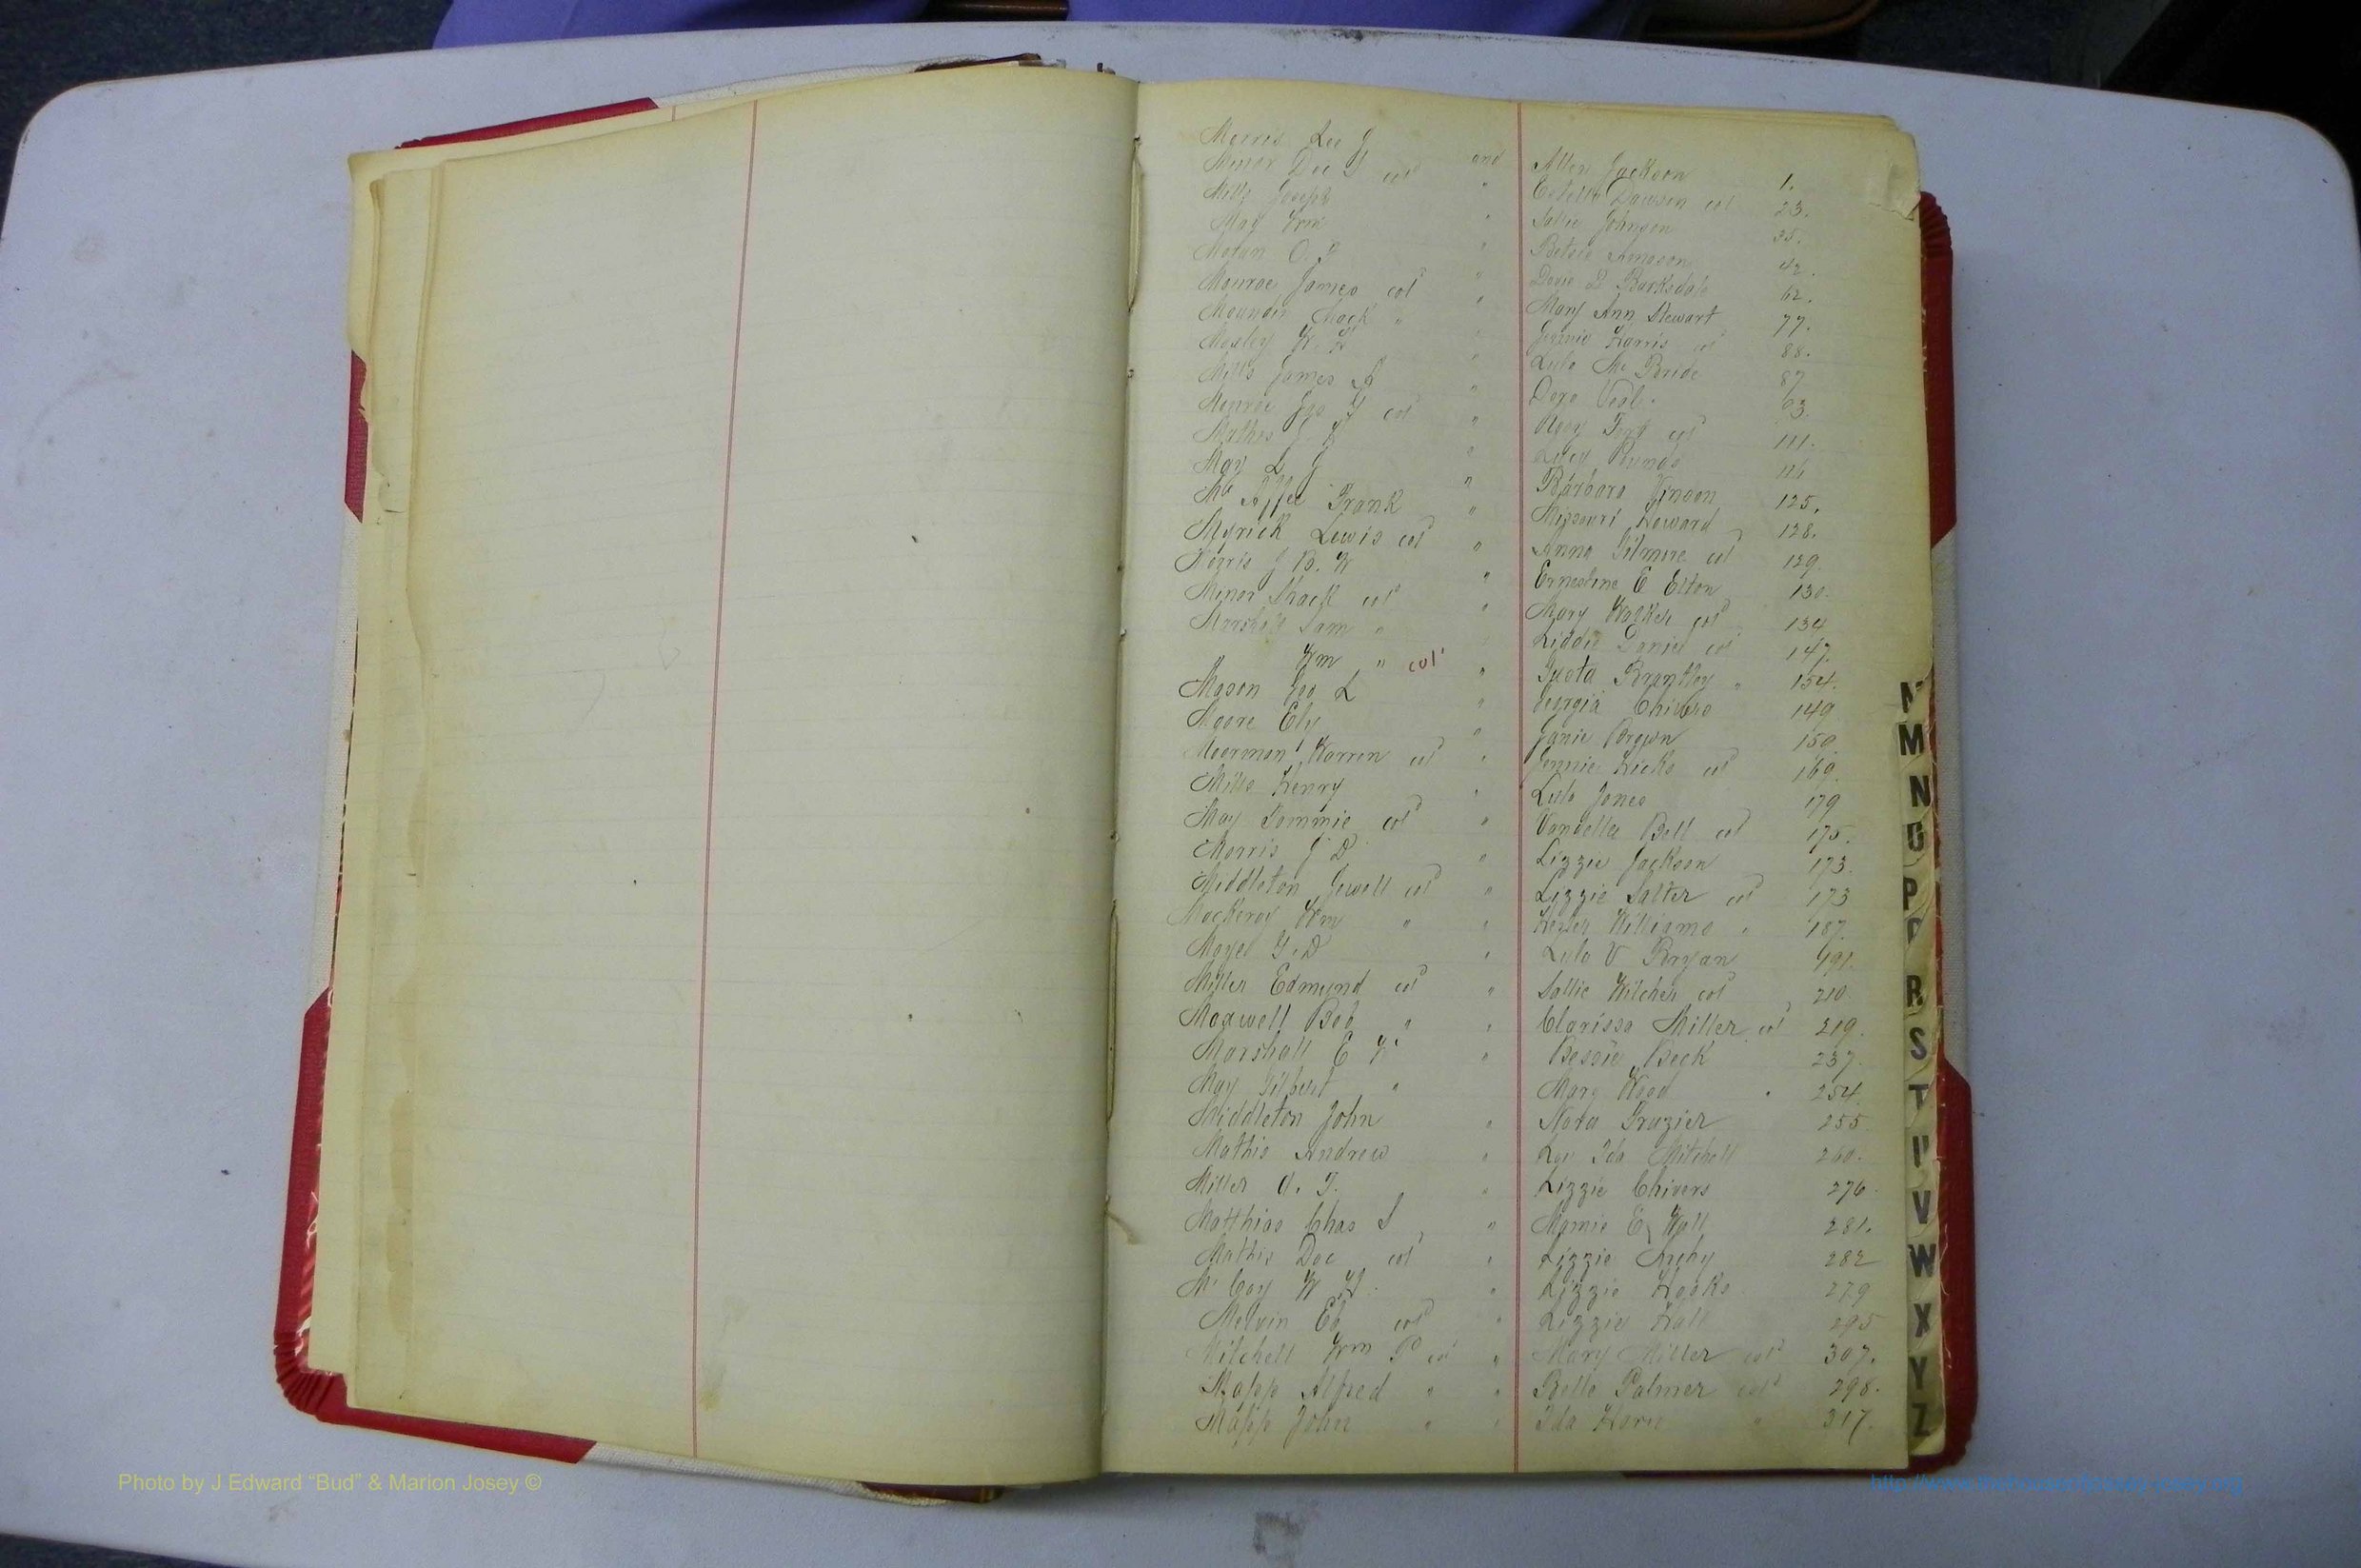 Morris Lee J and Allen Jackson 1.
Minor Doc J col " Estella Dawson col 23.
Mills Joseph " Sallie Johnson 35.
May Wm " Betsie 42.
Moran O. " Dovie Barksdale 62.
Monroe James col " Mary Ann Stewart 77.
Mack " " Jennie Harris col 88.
Mosley W. H " Lula McBride 87
Mills James A " Dora Veal. 63.
Monroe Geo col " Rosy col 111.
Mathis J. " Lucy 116
May L J " Barbara Vinson 125.
Mc Affee Frank " Missouri Howard 128.
Myrick Lewis col " Anna Gilmore col 129.
Morris J B. W " Ernestine E Elton 130.
Minor Shack col " Mary Walker col 134
Marshall Sam " " Liddie Daniel col 147.
Wm " col " Brantley " 154.
Mason Geo L " Georgia Chivers 149
Moore Ely " Janie Brown 150.
Moorman Warren col " Jennie Hicks col 169.
Mills Henry " Lula Jones 179
May Tommie col " Vandella Bell col 175.
Morris J D " Lizzie Jackson 173.
Middleton Jewell col " Lizzie Salter col 173
Wm " " Williams " 187.
Moye G. D " Lula V Bryan 191.
Miller Edmund col " Sallie Wilcher col 210
Maxwell Bob " " Clarissa Miller col 219.
Marshall E W. " Bessie Beck 237.
May Gilbert " Mary Wood " 254.
Middleton John " Nora Frazier 255
Mathis Andrew " Ida Mitchell 260.
Miller O. T. " Lizzie Chivers 276.
Matthias Chas S " Mamie E Wall 281.
Mathis Doc col " Lizzie Archy 282
Mc Coy W H. " Lizzie Hooks 279
Melvin Eb col " Lizzie Hall 295
Mitchell Wm P col " Mary Miller col 307.
Mapp Alfred " " Belle Palmer col 298.
Mapp John " " Ida Horn " 317.
M
M
N
O
P
R
S
T
U
V
W
X
Y
Z
Photo by J Edward “Bud” & Marion Josey ©